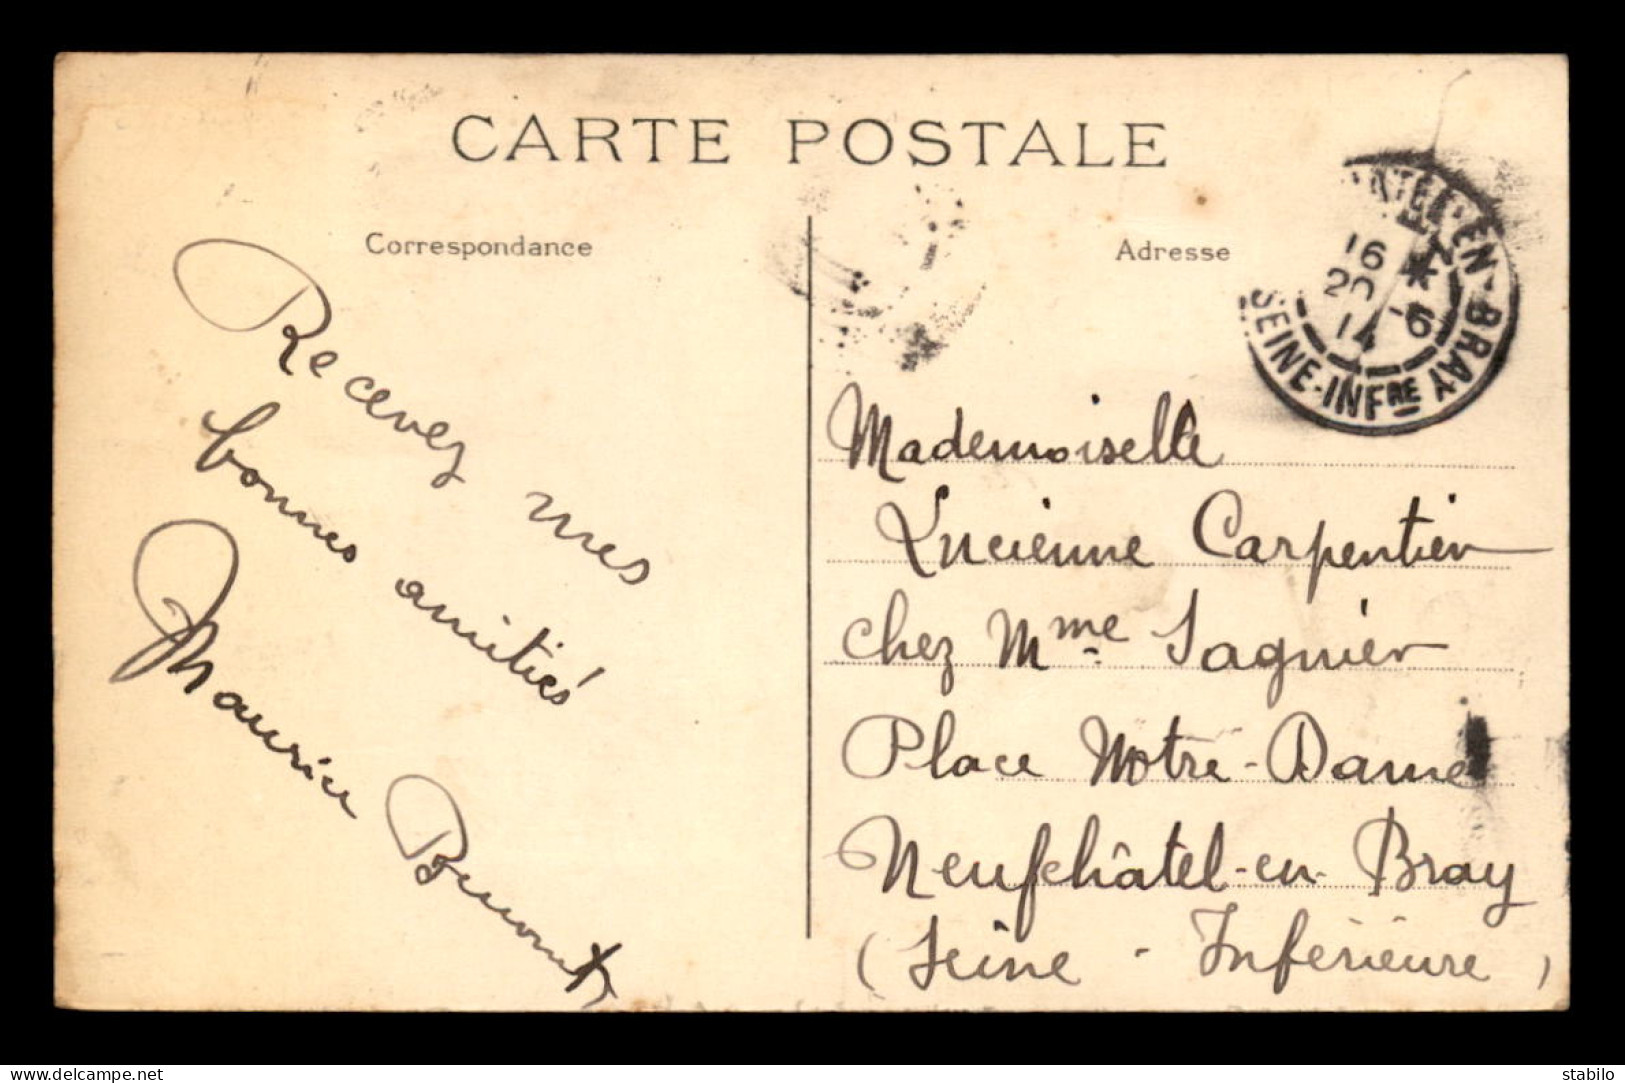 CARTE POSTALE
Correspondance
Recevez mes
bonnes amitiés
Maurice
Adresse
EN-BRAY
16
20 -6
14
SEINE-INFRE
Mademoiselle
Lucienne Carpentier
chez Mme Sagnier
Place Notre-Dame
Neufchâtel-en-Bray
(Seine - Inférieure)
www.delcampe.net
stabilo